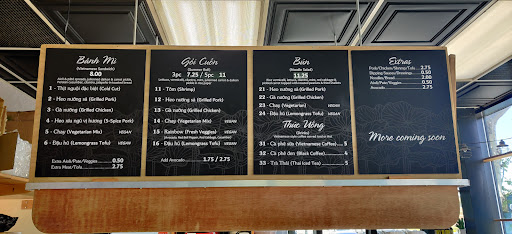 Bánh Mì
(Vietnamese Sandwich)
8.00
1 - Thịt nguội đặc biệt (Cold Cut)
2 - Heo nướng sả (Grilled Pork)
3 - Gà nướng sả (Grilled Chicken)
4 - Heo sấu ngũ vị hương (5-Spice Pork)
5 - Chay (Vegetarian Mix) VEGAN
6 - Đậu hủ (Lemongrass Tofu) VEGAN
Extra Aioli/Pate/Veggies 0.50
Extra Meat/Tofu 2.75
Gỏi Cuốn
(Summer Roll)
3pc 7.25 / 5pc 11
11 - Tôm (Shrimp)
12 - Heo nướng sả (Grilled Pork)
13 - Gà nướng sả (Grilled Chicken)
14 - Chay (Vegetarian Mix) VEGAN
15 - Rainbow (Fresh Veggies) VEGAN
16 - Đậu hủ (Lemongrass Tofu) VEGAN
Add Avocado 1.75 / 2.75
Bún
(Noodle Salad)
11.25
21 - Heo nướng sả (Grilled Pork)
22 - Gà nướng sả (Grilled Chicken)
23 - Chay (Vegetarian) VEGAN
24 - Đậu hủ (Lemongrass Tofu) VEGAN
Thức Uống
(Drinks)
31 - Cà phê sữa (Vietnamese Coffee) 5
32 - Cà phê đen (Black Coffee) 4
33 - Trà Thái (Thai Iced Tea) 5
Extras
Pork/Chicken/Shrimp/Tofu 2.75
Dipping Sauces/Dressings 0.50
Noodles/Bread 2.00
Aioli/Pate/Veggies 0.50
Avocado 2.75
More coming soon